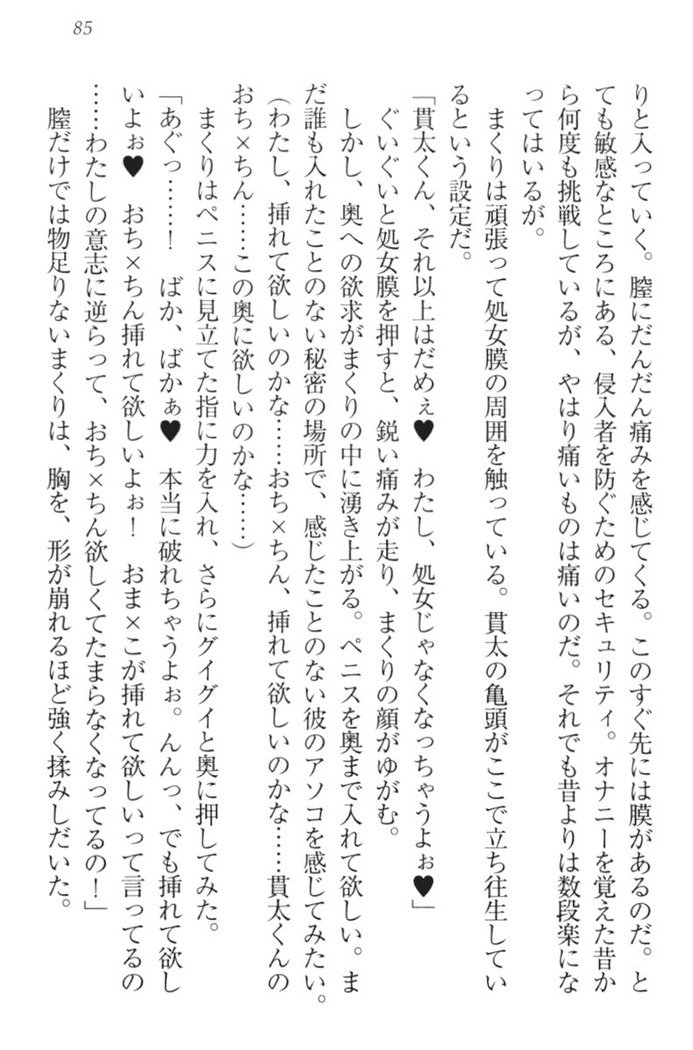 85
りと入っていく。膣にだんだん痛みを感じてくる。このすぐ先には膜があるのだ。と
ても敏感なところにある、侵入者を防ぐためのセキュリティ。オナニーを覚えた昔か
ら何度も挑戦しているが、やはり痛いものは痛いのだ。それでも昔よりは数段楽にな
ってはいるが。
まくりは頑張って処女膜の周囲を触っている。貫太の亀頭がここで立ち往生してい
るという設定だ。
「貫太くん、それ以上はだめぇ♥　わたし、処女じゃなくなっちゃうよぉ♥」
ぐいぐいと処女膜を押すと、鋭い痛みが走り、まくりの顔がゆがむ。
しかし、奥への欲求がまくりの中に湧き上がる。ペニスを奥まで入れて欲しい。ま
だ誰も入れたことのない秘密の場所で、感じたことのない彼のアソコを感じてみたい。
（わたし、挿れて欲しいのかな……おち×ちん、挿れて欲しいのかな……貫太くんの
おち×ちん……この奥に欲しいのかな……）
まくりはペニスに見立てた指に力を入れ、さらにグイグイと奥に押してみた。
「あぐっ……！　ばか、ばかぁ♥　本当に破れちゃうよぉ。んんっ、でも挿れて欲し
いよぉ♥　おち×ちん挿れて欲しいよぉ！　おま×こが挿れて欲しいって言ってるの
……わたしの意志に逆らって、おち×ちん欲しくてたまらなくなってるの！」
膣だけでは物足りないまくりは、胸を、形が崩れるほど強く揉みしだいた。